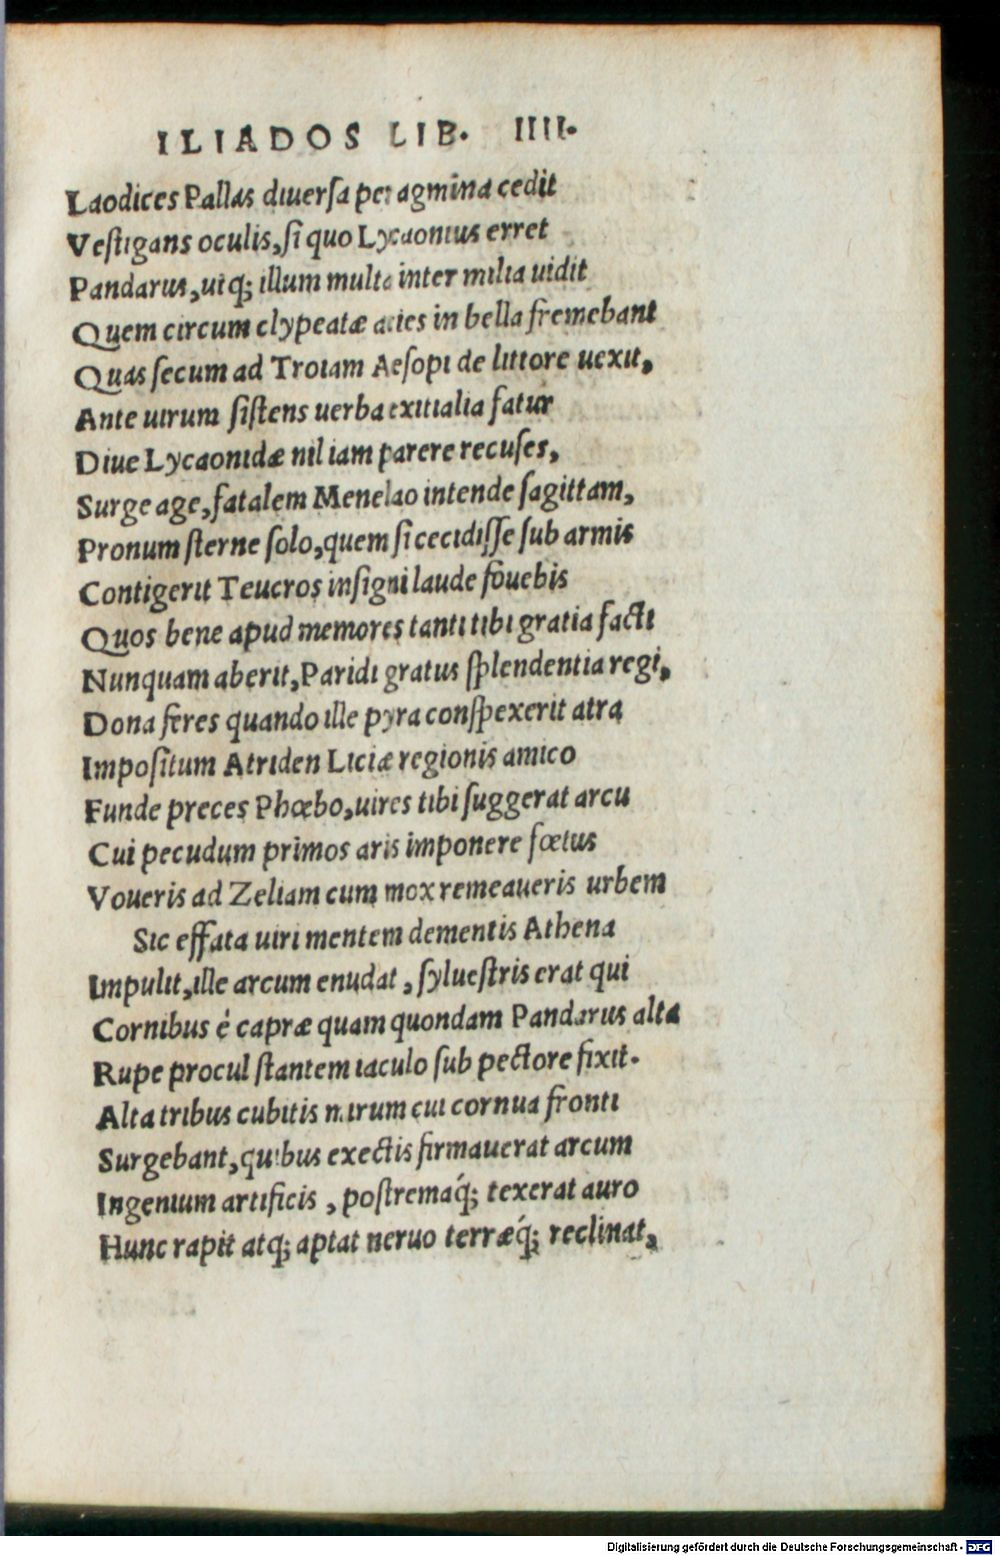 ILIADOS LIB. IIII.
Laodices Pallas diuerſa per agmina cedit
Veſtigans oculis, ſi quo Lycaonius erret
Pandarus, utq; illum multa inter milia uidit
Quem circum clypeatæ acies in bella fremebant
Quas ſecum ad Troiam Aeſopi de littore uexit,
Ante uirum ſiſtens uerba exitialia fatur
Diue Lycaonidæ nil iam parere recuſes,
Surge age, fatalem Menelao intende ſagittam,
Pronum ſterne ſolo, quem ſi cecidiſſe ſub armis
Contigerit Teucros inſigni laude fouebis
Quos bene apud memores tanti tibi gratia facti
Nunquam aberit, Paridi gratus ſplendentia regi,
Dona feres quando ille pyra conſpexerit atra
Impoſitum Atriden Liciæ regionis amico
Funde preces Phœbo, uires tibi ſuggerat arcu
Cui pecudum primos aris imponere fœtus
Voueris ad Zeliam cum mox remeaueris urbem
Sic effata uiri mentem dementis Athena
Impulit, ille arcum enudat, ſylueſtris erat qui
Cornibus é capræ quam quondam Pandarus alta
Rupe procul ſtantem iaculo ſub pectore fixit.
Alta tribus cubitis mirum cui cornua fronti
Surgebant, quibus exectis firmauerat arcum
Ingenium artificis, poſtremaq́; texerat auro
Hunc rapit atq; aptat neruo terræq́; reclinat,
Digitalisierung gefördert durch die Deutsche Forschungsgemeinschaft - DFG